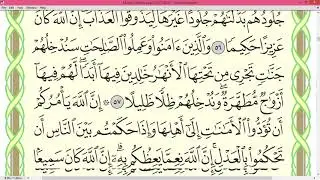 جُلُودُهُم بَدَّلْنَٰهُمْ جُلُودًا غَيْرَهَا لِيَذُوقُوا۟ ٱلْعَذَابَ ۗ إِنَّ ٱللَّهَ كَانَ
عَزِيزًا حَكِيمًا ٥٦ وَٱلَّذِينَ ءَامَنُوا۟ وَعَمِلُوا۟ ٱلصَّٰلِحَٰتِ سَنُدْخِلُهُمْ
جَنَّٰتٍ تَجْرِى مِن تَحْتِهَا ٱلْأَنْهَٰرُ خَٰلِدِينَ فِيهَآ أَبَدًا ۖ لَّهُمْ فِيهَآ
أَزْوَٰجٌ مُّطَهَّرَةٌ ۖ وَنُدْخِلُهُمْ ظِلًّا ظَلِيلًا ٥٧ ۞ إِنَّ ٱللَّهَ يَأْمُرُكُمْ
أَن تُؤَدُّوا۟ ٱلْأَمَٰنَٰتِ إِلَىٰٓ أَهْلِهَا وَإِذَا حَكَمْتُم بَيْنَ ٱلنَّاسِ أَن
تَحْكُمُوا۟ بِٱلْعَدْلِ ۚ إِنَّ ٱللَّهَ نِعِمَّا يَعِظُكُم بِهِۦٓ ۗ إِنَّ ٱللَّهَ كَانَ سَمِيعًۢا